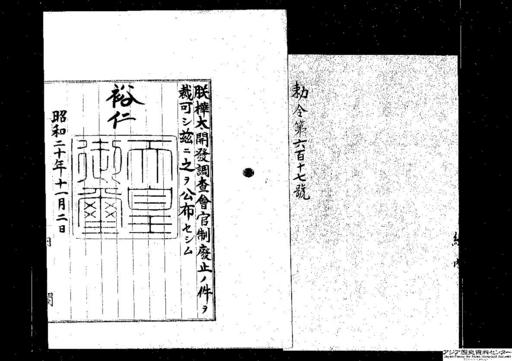 勅令第六百十七號
朕樺太開發調査會官制廢止ノ件ヲ
裁可シ茲ニ之ヲ公布セシム
裕仁
天皇
御璽
昭和二十年十一月二日
アジア歴史資料センター